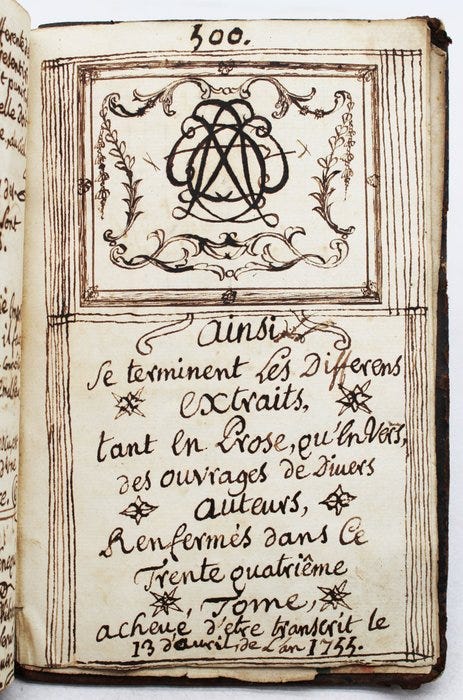 300.
Ainsi
se terminent Les Differens
extraits,
tant En Prose, qu'En Vers,
des ouvrages de Divers
auteurs,
Renfermés dans Ce
Trente quatriême
Tome,
acheué d'etre transcrit le
13 d'auril, de L'an 1755.